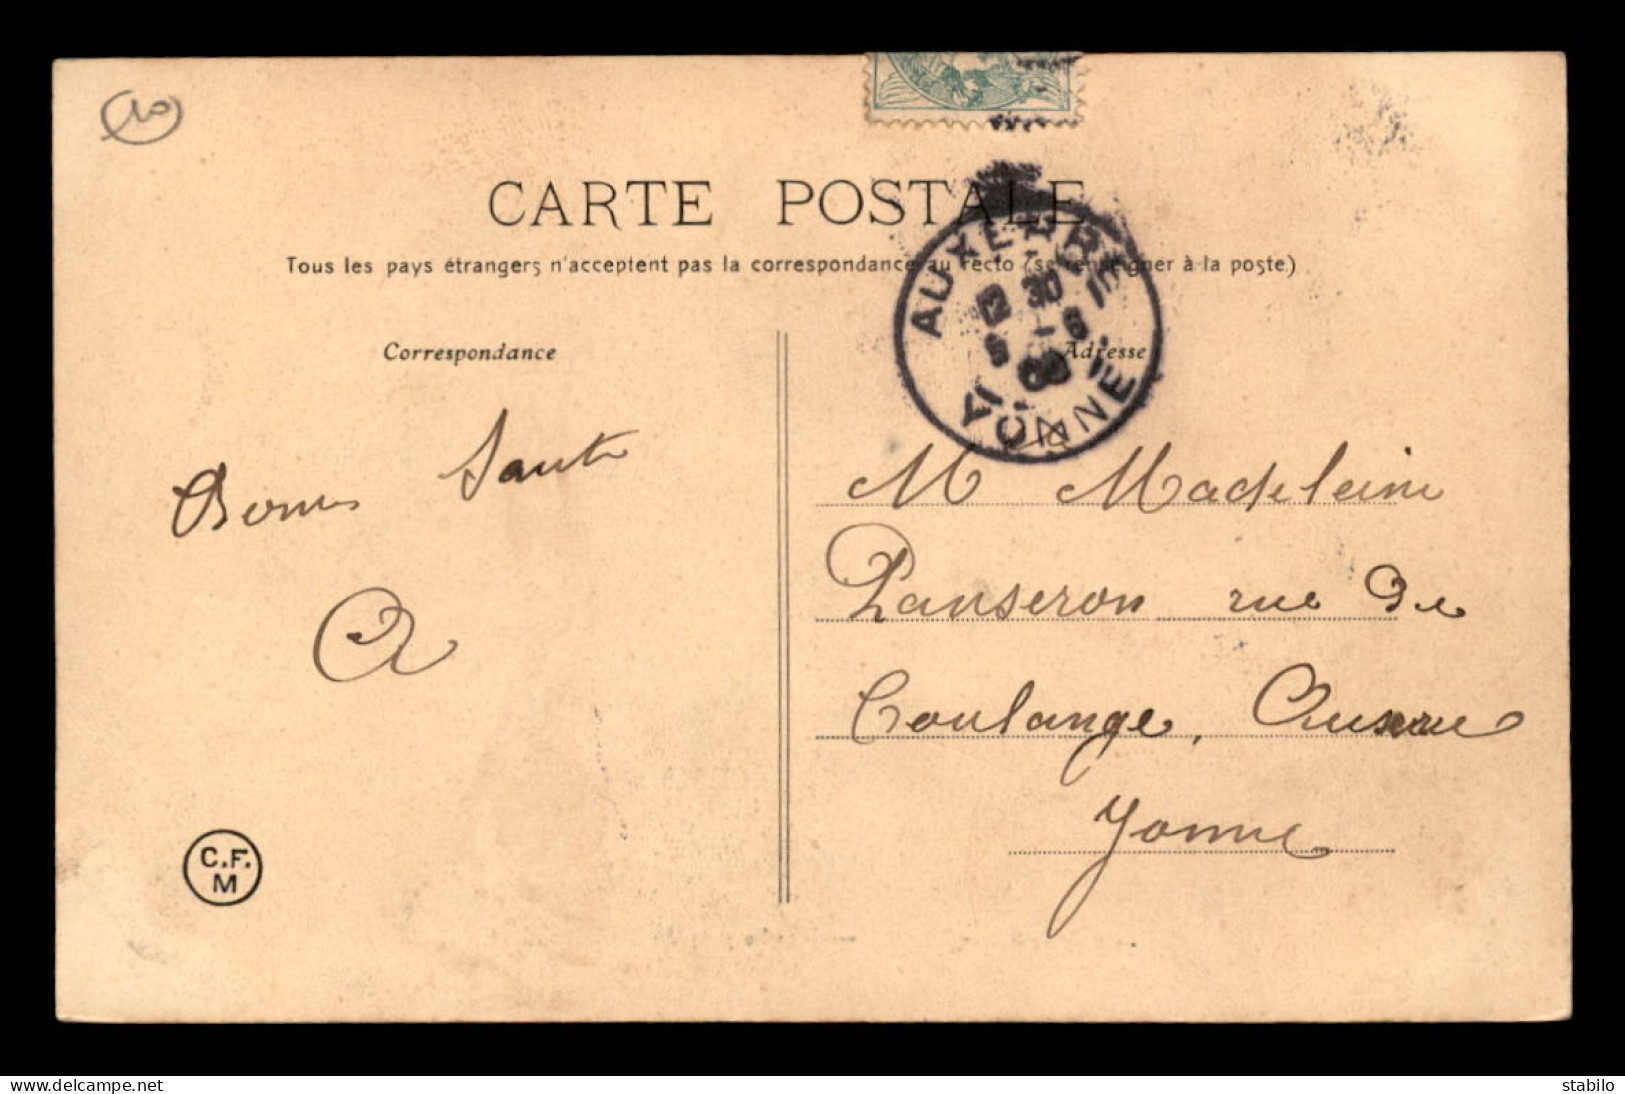 10
CARTE POSTALE
Tous les pays étrangers n'acceptent pas la correspondance au recto (se renseigner à la poste)
AUXERRE
12 30
5 - 6
YONNE
Correspondance
Adresse
Bonne Santé
A
M Madeleine
Panseron rue De
Coulange, Auxerre
Yonne
C.F.
M
www.delcampe.net
stabilo